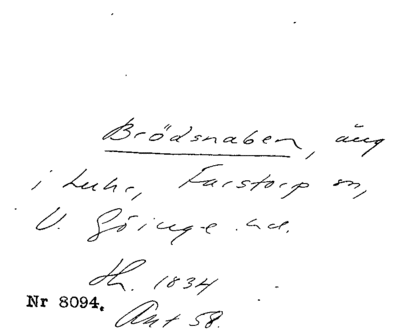 Brödsnaben, äng
i Luhr, Farstorp sn,
V. Göinge hd.
Ant 58.
Nr 8094.
1834